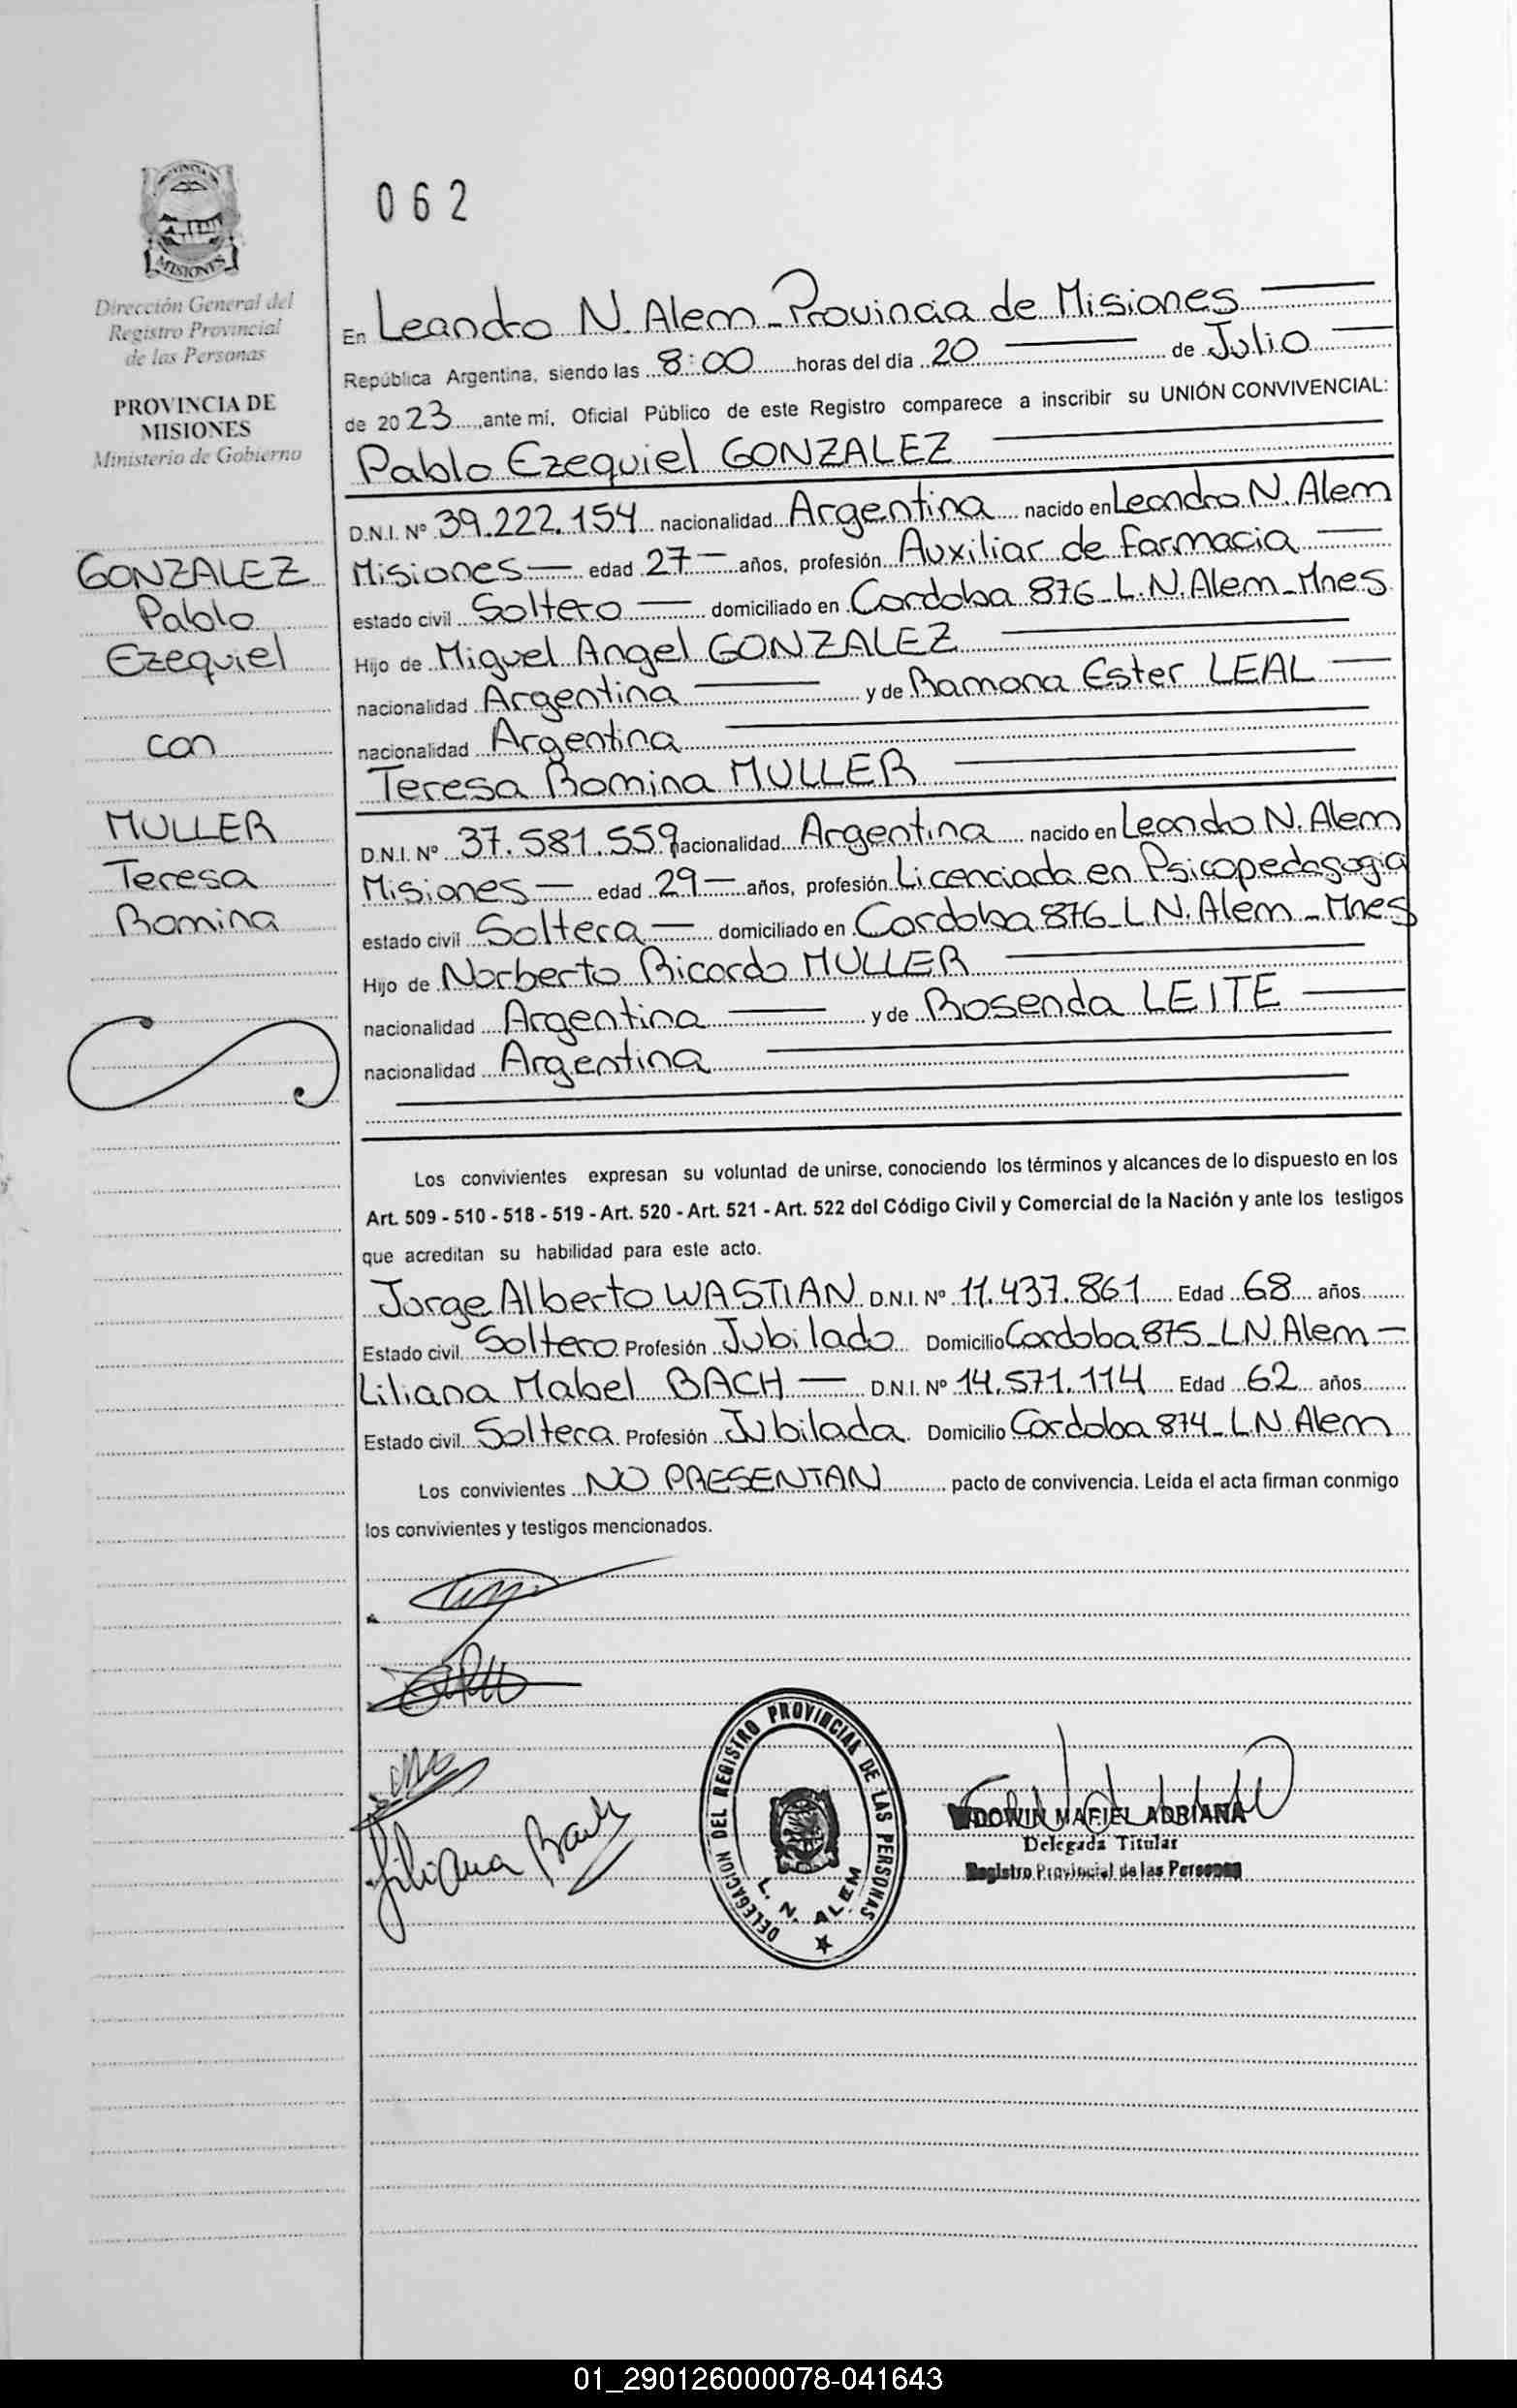 PROVINCIA
MISIONES
Dirección General del
Registro Provincial
de las Personas
PROVINCIA DE
MISIONES
Ministerio de Gobierno
GONZALEZ
Pablo
Ezequiel
con
MULLER
Teresa
Romina
062
En Leandro N. Alem - Provincia de Misiones
República Argentina, siendo las 8:00 horas del día 20 de Julio
de 2023, ante mí, Oficial Público de este Registro comparece a inscribir su UNIÓN CONVIVENCIAL:
Pablo Ezequiel GONZALEZ
D.N.I. Nº 39.222.154 nacionalidad Argentina nacido en Leandro N. Alem
Misiones — edad 27 — años, profesión Auxiliar de farmacia
estado civil Soltero — domiciliado en Cordoba 876 - L.N. Alem - Mnes
Hijo de Miguel Angel GONZALEZ
nacionalidad Argentina y de Ramona Ester LEAL
nacionalidad Argentina
Teresa Romina MULLER
D.N.I. Nº 37.581.559 nacionalidad Argentina nacido en Leandro N. Alem
Misiones — edad 29 — años, profesión Licenciada en Psicopedagogia
estado civil Soltera — domiciliado en Cordoba 876 - L.N. Alem - Mnes
Hijo de Norberto Ricardo MULLER
nacionalidad Argentina y de Rosenda LEITE
nacionalidad Argentina
Los convivientes expresan su voluntad de unirse, conociendo los términos y alcances de lo dispuesto en los
Art. 509 - 510 - 518 - 519 - Art. 520 - Art. 521 - Art. 522 del Código Civil y Comercial de la Nación y ante los testigos
que acreditan su habilidad para este acto.
Jorge Alberto WASTIAN D.N.I. Nº 11.437.861 Edad 68 años
Estado civil Soltero Profesión Jubilado Domicilio Cordoba 875 - L.N. Alem —
Liliana Mabel BACH — D.N.I. Nº 14.571.114 Edad 62 años
Estado civil Soltera Profesión Jubilada Domicilio Cordoba 874 - L.N. Alem
Los convivientes NO PRESENTAN pacto de convivencia. Leída el acta firman conmigo
los convivientes y testigos mencionados.
Liliana Bach
DELEGACION DEL REGISTRO PROVINCIAL DE LAS PERSONAS
L. N. ALEM
ADRIANA
Delegada Titular
Registro Provincial de las Personas
01_290126000078-041643